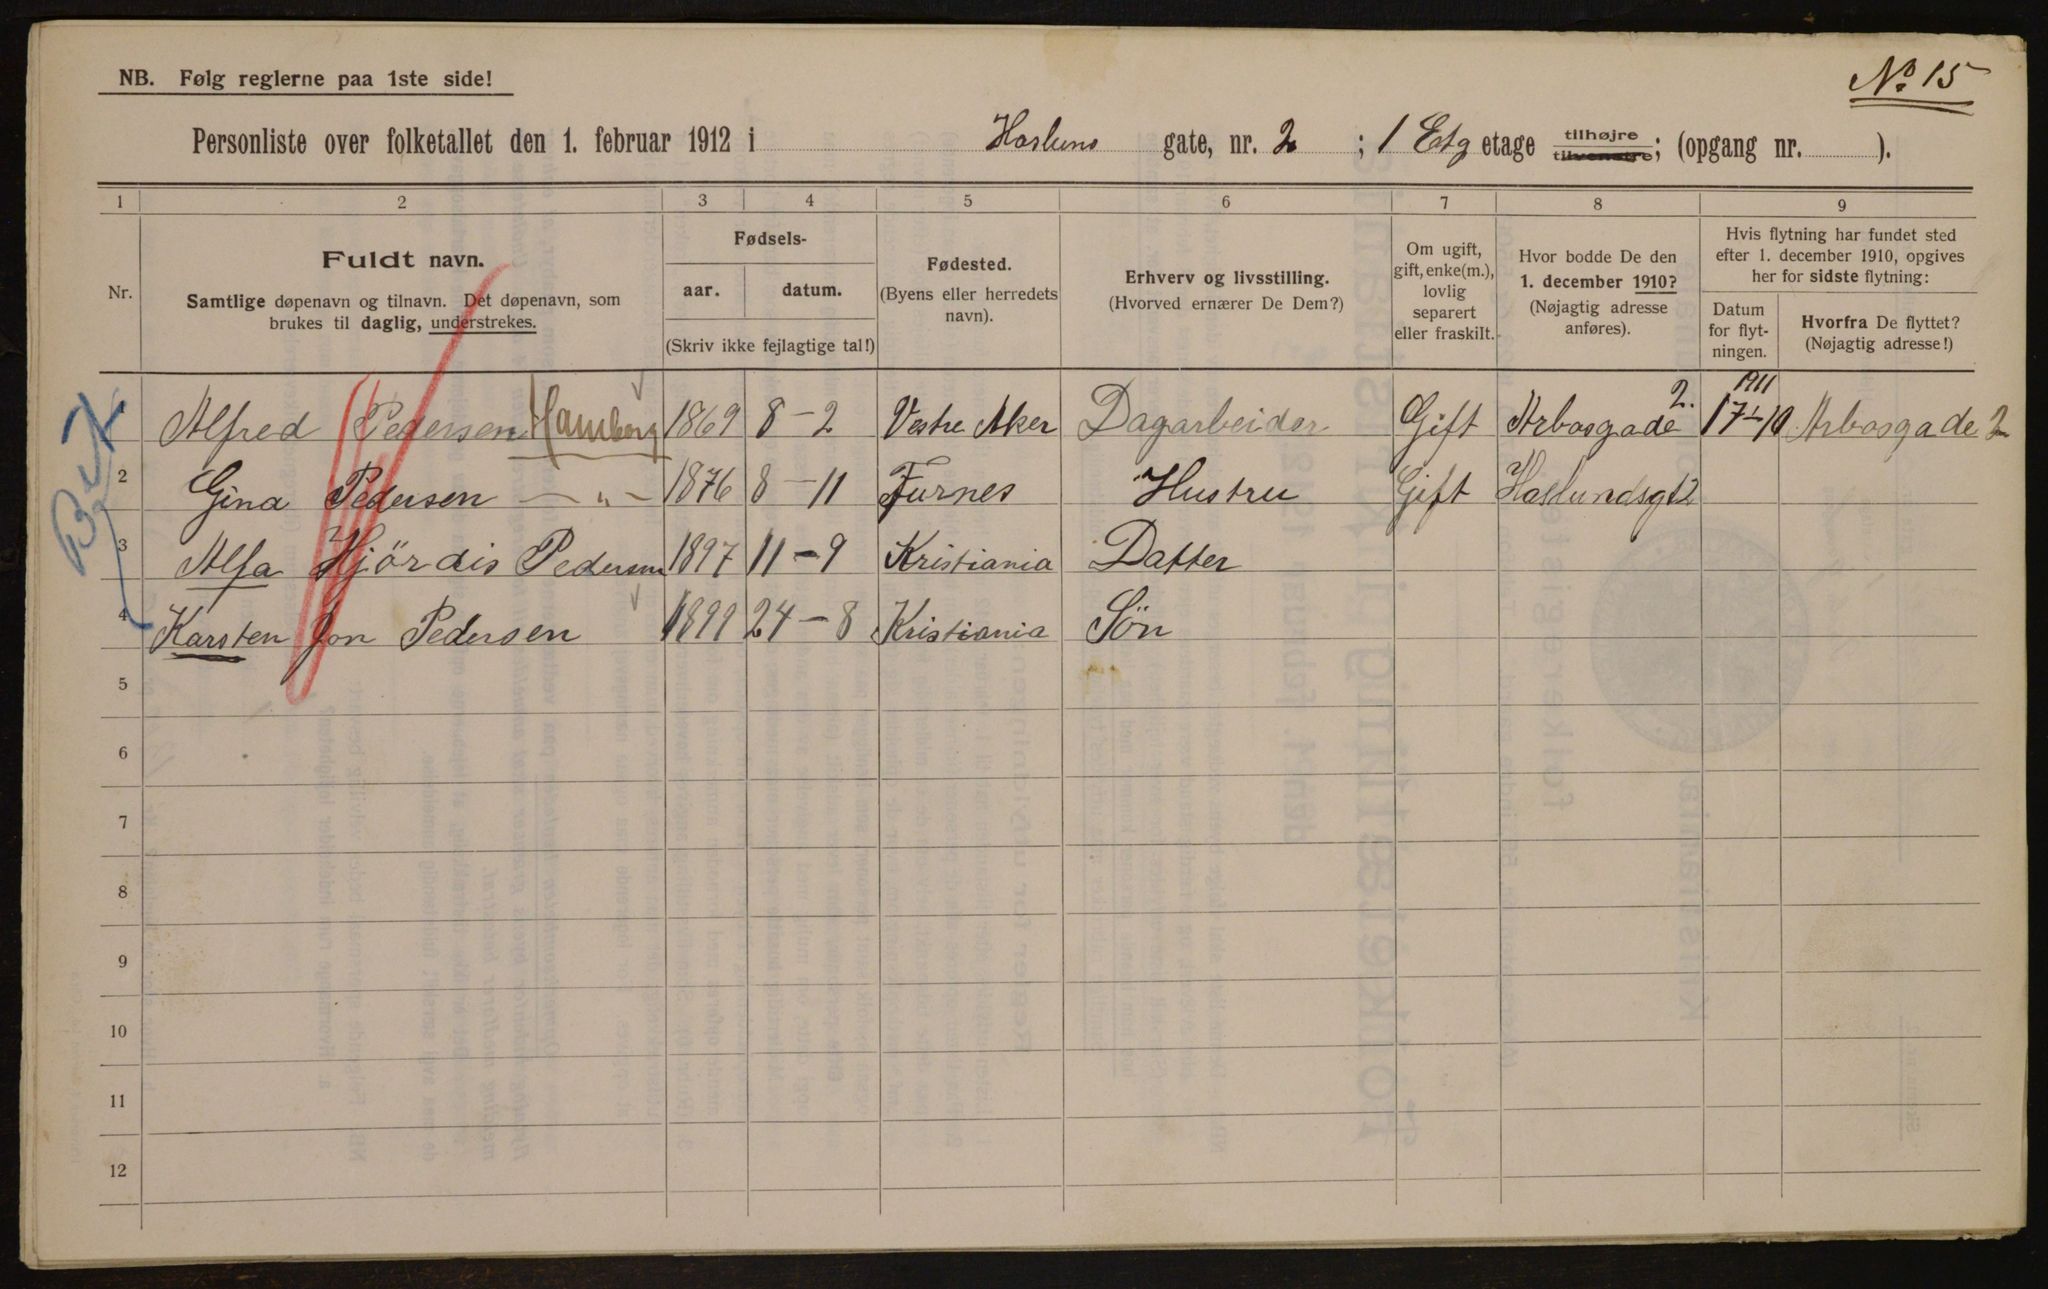 NB. Følg reglerne paa 1ste side!
No. 15
Personliste over folketallet den 1. februar 1912 i Hasluns gate, nr. 2 ; 1 Etg etage tilhøjre tilvenstre; (opgang nr. ).
1 2 3 4 5 6 7 8 9
Nr.
Fuldt navn.
Samtlige døpenavn og tilnavn. Det døpenavn, som
brukes til daglig, understrekes.
Fødsels-
aar. datum.
(Skriv ikke fejlagtige tal!)
Fødested.
(Byens eller herredets
navn).
Erhverv og livsstilling.
(Hvorved ernærer De Dem?)
Om ugift,
gift, enke(m.),
lovlig
separert
eller fraskilt.
Hvor bodde De den
1. december 1910?
(Nøjagtig adresse
anføres).
Hvis flytning har fundet sted
efter 1. december 1910, opgives
her for sidste flytning:
Datum
for flyt-
ningen.
Hvorfra De flyttet?
(Nøjagtig adresse!)
1 Alfred Pedersen Hamborg 1869 8-2 Vestre Aker Dagarbeider Gift Arbosgade 2. 1911 17-10 Arbosgade 2
2 Gina Pedersen — „ — 1876 8-11 Furnes Hustru Gift Haslundsgt 2
3 Alfa Hjördis Pedersen 1897 11-9 Kristiania Datter
4 Karsten Jon Pedersen 1899 24-8 Kristiania Sön
5
6
7
8
9
10
11
12